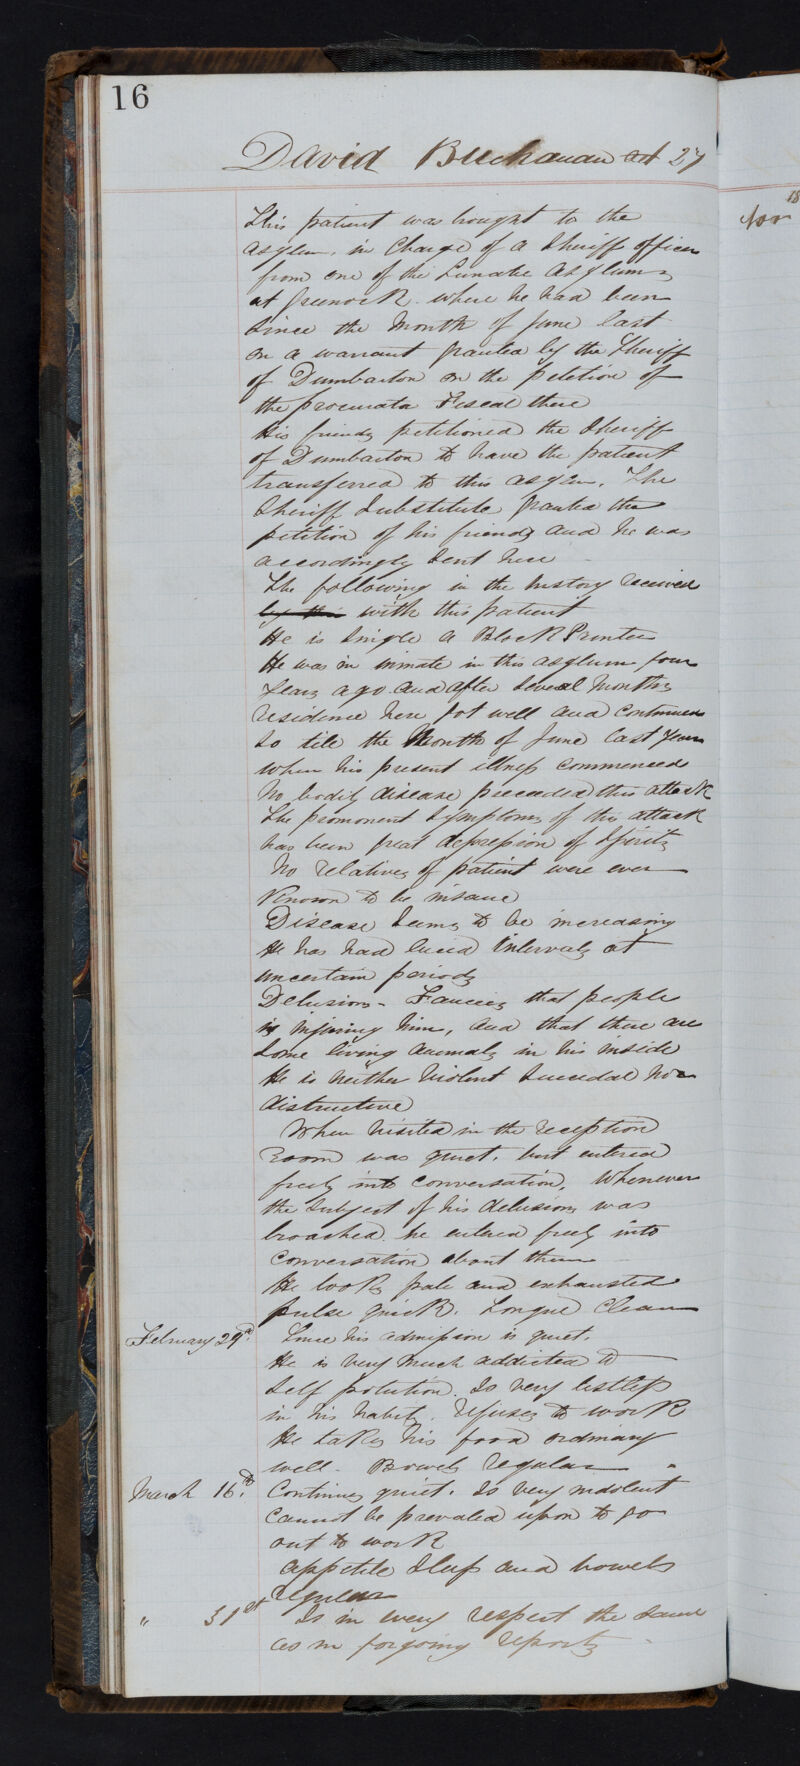 16
David Buchanan aet 27
This patient was brought to the
asylum. in Charge of a Sheriff officer
from one of the Lunatic Asylums
at Greenock. where he had been
Since the Month of June last
on a warrant granted by the Sheriff
of Dumbarton on the petition of
the procurata Fiscal there
His friends petitioned the Sheriff
of Dumbarton to have the patient
transferred to this asylum. The
Sheriff Substitute granted the
petition of his friends and he was
accordingly Sent here
The following in the history received
by this with this patient
He is Single a Block Printer
He was in inmate in this asylum four
Years ago. and after Several Months
residence here got well and continued
So till the Month of June last year
when his present illness commenced
No bodily disease preceeded this attack
The promonent Symptoms of this attack
has been great depression of Spirits
No relatives of patient were ever
Known to be insane
Disease Seems to be increasing
He has had lucid intervals at
uncertain periods
Delusions - Fancies that people
is injuring him, and that there are
Some living anemals in his inside
He is neither Violent Suicedal nor
distructive
When Visited in the reception
room was quiet. but entered
freely into conversation. Whenever
the Subject of his delusions was
broached. he entered freely into
conversation about them
He looks pale and exhausted
pulse quick. Tongue Clean
February 29th. Since his admission is quiet.
He is very much addicted to
Self polution. Is very listless
in his habits. refuses to work
He takes his food ordinary
well. Bowels regular
March 16th. Continues quiet. Is very indolent
Cannot be prevaled upon to go
out to work
appetite Sleep and bowels
regular
" 31st Is in every respect the same
as in forgoing reports
18